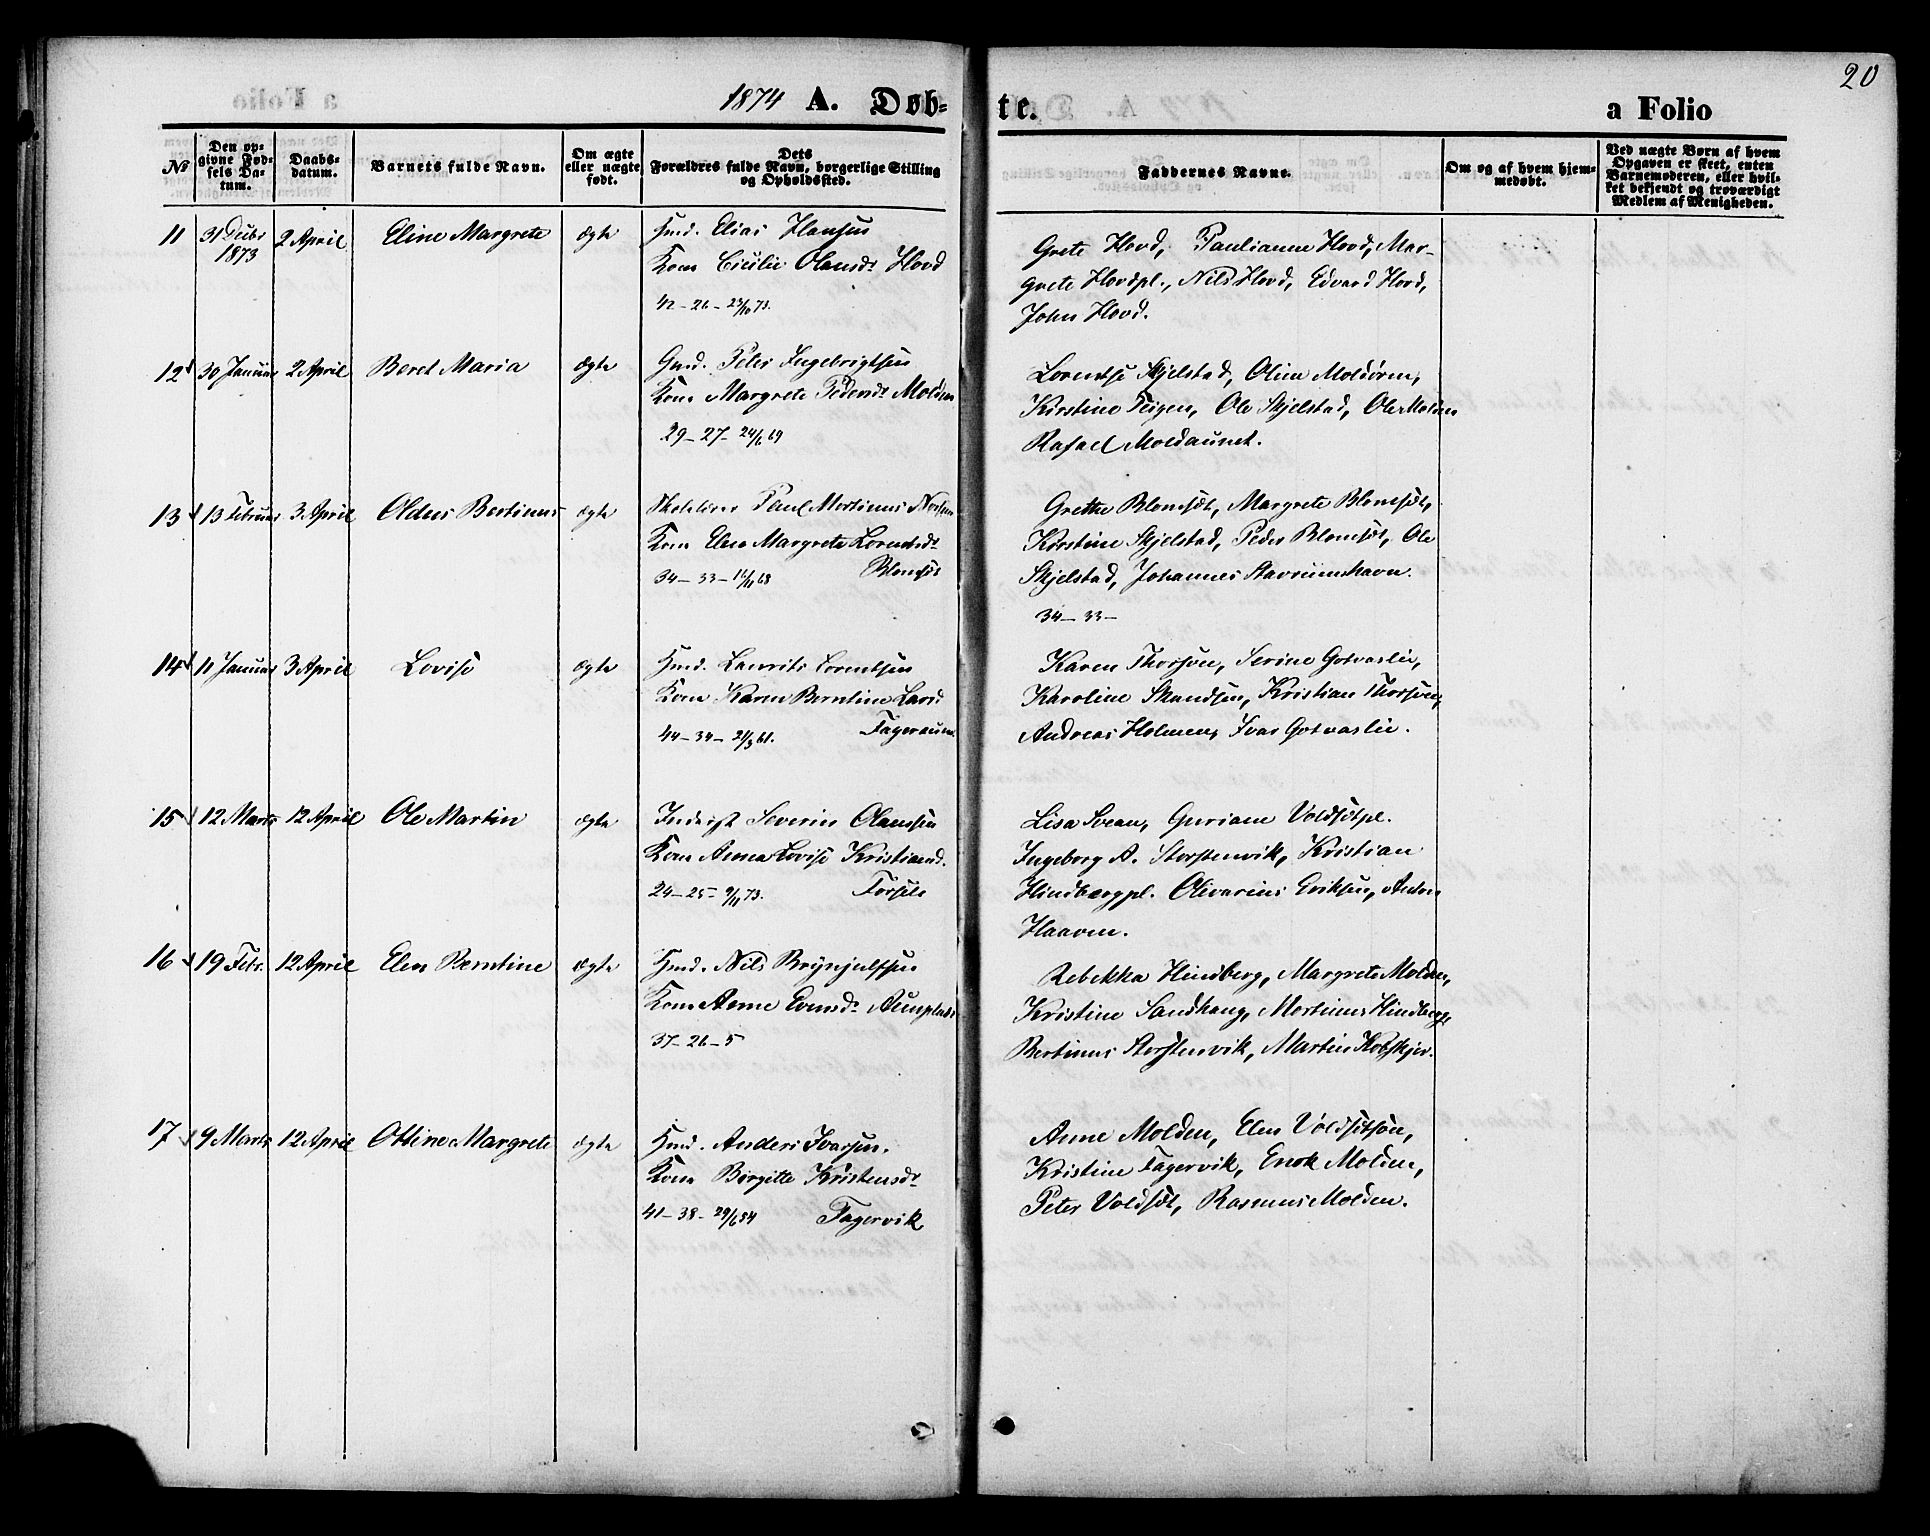 1874 A. Døb-
te.
a Folio
20
№
Den op-
givne Fød-
sels Da-
tum.
Daabs-
datum.
Barnets fulde Navn.
Om ægte
eller uægte
født.
Dets
Forældres fulde Navn, borgerlige Stilling
og Opholdssted.
Faddernes Navne.
Om og af hvem hjem-
medøbt.
Ved uægte Børn af hvem
Opgaven er skeet, enten
Barnemoderen, eller hvil-
ket bekjendt og troværdigt
Medlem af Menigheden.
11 31 Decbr 2 April Eline Margrete ægte Elias Hansen
1873
Kone Cicilie Olausdr Hovd
42-26-
Grete Hovd, Paulianne Hovd, Mar-
grete Hovdpl., Nils Hovd, Edvard Hovd,
John Hovd.
12 30 Januar 2 April Beret Maria ægte Gmd. Peter Ingebrigtsen
Kone Margrete Pedersdr Molden
29-27-24/6 69
Lorentse Skjelstad, Oline Moldøren,
Kirstine Teigen, Ole Skjelstad, Ole Molden
Rafael Moldaunet.
13 13 Februar 3 April Oldus Bertinus ægte Paul Martinus
Kone Elen Margrete Lorentsdr
34-33- 68 Blomsøt
Grethe Blomsøt, Margrete Blomsøt,
Kirstine Skjelstad, Peder Blomsøt, Ole
Skjelstad, Johannes Stavrumshavn.
34-33-
14 11 Januar 3 April Lovise ægte Laurits Lorentsen
Kone Karen Berntine Larsd.
44-34-21/9 61. Fageraunet
Karen Thorsøn, Serine Gotvaslie,
Karoline, Kristian Thorsøen,
Andreas Holmen, Ivar Gotvaslie.
15 12 Marts 12 April Ole Martin ægte Inderst Severin Olaussen
Kone Anna Lovise Kristiansd.
24-25-9/11 73. Forsele
Lisa Svean, Guriane Voldsetpl.
Ingeborg A. Storstenvik, Kristian
Hindbergpl. Olivarius Eriksen, Anton
Haaven.
16 19 Febr. 12 April Elen Berntine ægte Nils Brynjulfsen
Kone Anne Evensdr Aunplads
37-26-5
Rebekka Hindberg, Margrete Molden,
Kristine Sandhaug, Martinus Hindberg
Bertinus Storstenvik, Martin Kobskjer.
17 9 Marts 12 April Ottine Margrete ægte Anders Ivarsen.
Kone Birgitte Kristensdr
41-38-29/6 54 Fagervik
Anne Molden, Elen Voldsetøen,
Kristine Fagervik, Enok Molden,
Peter Voldset, Rasmus Molden.